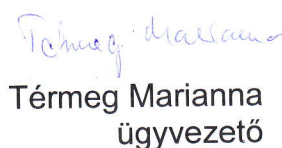 Térmeg Marianna
Térmeg Marianna
ügyvezető